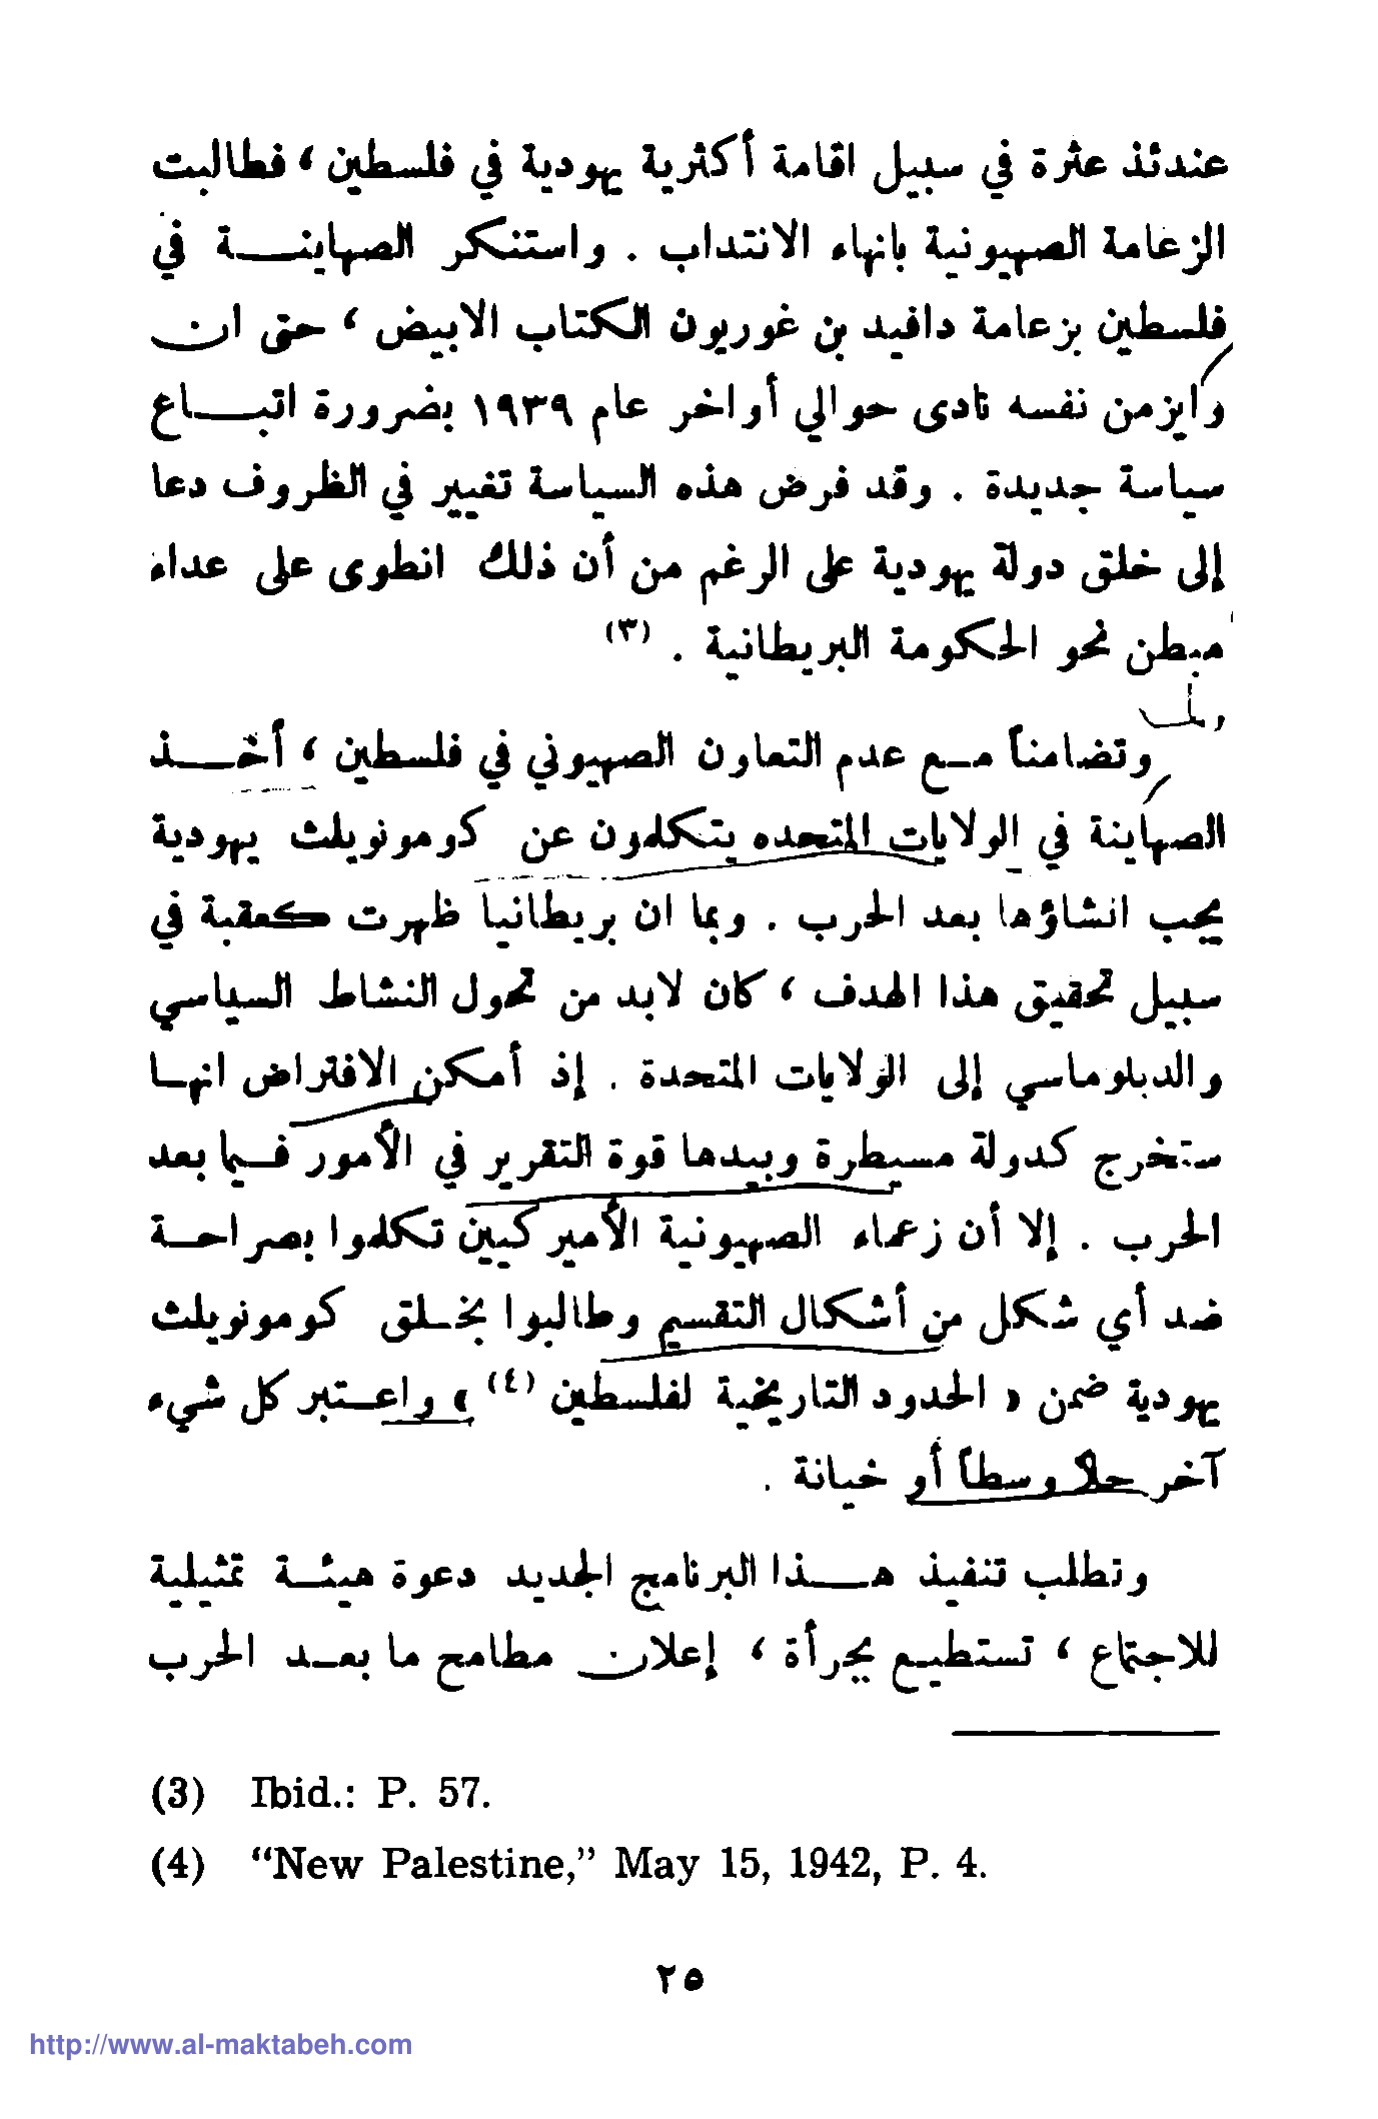 عندئذ عثرة في سبيل اقامة أكثرية يهودية في فلسطين ، فطالبت
الزعامة الصهيونية بانهاء الانتداب . واستنكر الصهاينة في
فلسطين بزعامة دافيد بن غوريون الكتاب الابيض ، حتى ان
وايزمن نفسه نادى حوالي أواخر عام ١٩٣٩ بضرورة اتباع
سياسة جديدة . وقد فرض هذه السياسة تغيير في الظروف دعا
إلى خلق دولة يهودية على الرغم من أن ذلك انطوى على عداء
مبطن نحو الحكومة البريطانية . (٣)
وتضامناً مع عدم التعاون الصهيوني في فلسطين ، أخذ
الصهاينة في الولايات المتحده يتكلمون عن كومونويلث يهودية
يجب انشاؤها بعد الحرب . وبما ان بريطانيا ظهرت كعقبة في
سبيل تحقيق هذا الهدف ، كان لابد من تحول النشاط السياسي
والدبلوماسي إلى الولايات المتحدة . إذ أمكن الافتراض انها
ستخرج كدولة مسيطرة وبيدها قوة التقرير في الأمور فيما بعد
الحرب . إلا أن زعماء الصهيونية الأميركيين تكلموا بصراحة
ضد أي شكل من أشكال التقسيم وطالبوا بخلق كومونويلث
يهودية ضمن « الحدود التاريخية لفلسطين (٤) » واعتبر كل شيء
آخر حلاً وسطاً أو خيانة .
وتطلب تنفيذ هذا البرنامج الجديد دعوة هيئة تمثيلية
للاجتماع ، تستطيع بجرأة ، إعلان مطامح ما بعد الحرب
(3) Ibid.: P. 57.
(4) “New Palestine,” May 15, 1942, P. 4.
٢٥
http://www.al-maktabeh.com